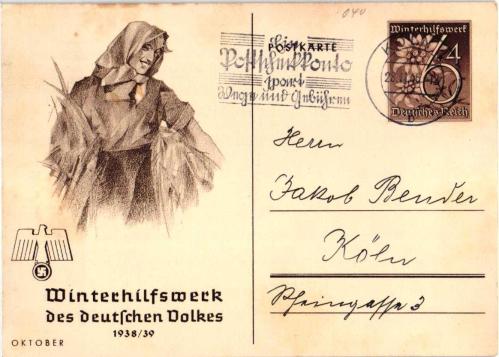 040
POSTKARTE
Ein
Postscheckkonto
spart
Wege und Gebühren
Winterhilfswerk
6+4
Deutsches Reich
Herrn
Jakob Bender
Köln
3
Winterhilfswerk
des deutschen Volkes
1938/39
OKTOBER